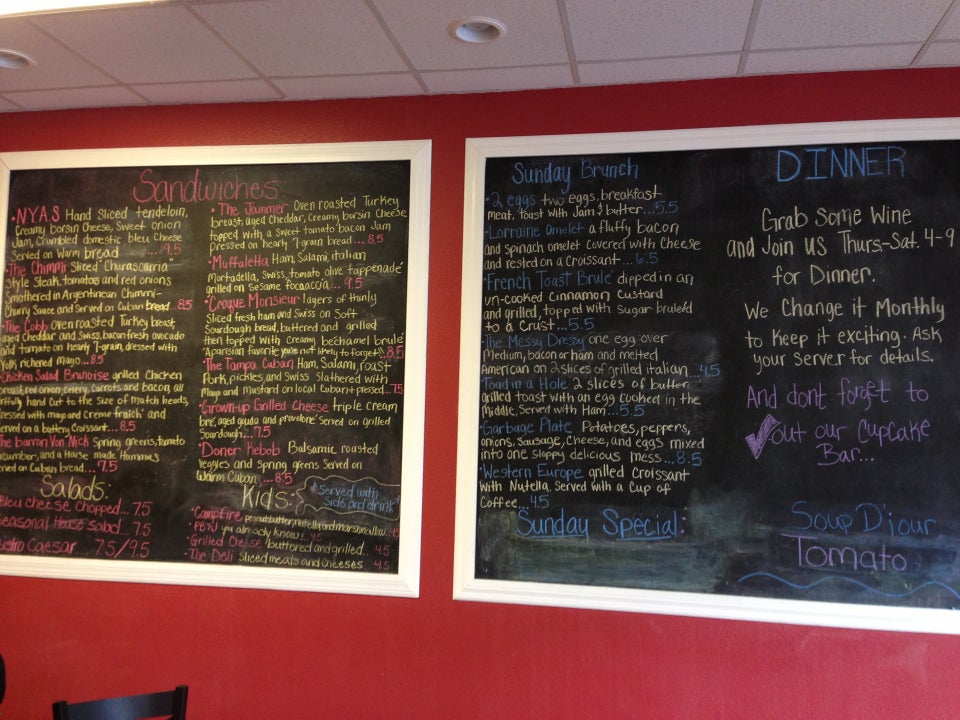 Sandwiches:
•N.Y.A.S Hand Sliced tendeloin,
Creamy borsin Cheese, Sweet onion
Jam, Crumbled domestic bleu Cheese
Served on Warm bread ... 9.5
•The Chimmi Sliced "Churascarria"
Style Steak, tomatos and red onions
Smothered in Argentinean Chimmi-
Churry Sauce and Served on Cuban bread 8.5
•The Cobb Oven roasted Turkey breast,
aged Cheddar and Swiss, bacon fresh avocado
and tomato on hearty 7-grain, dressed with
Yolk enriched mayo...8.5
Chicken Salad Brunoise grilled Chicken
breast, red onion, celery, Carrots and bacon, all
artfully hand Cut to the Size of match heads,
dressed with mayo and Creme fraich' and
served on a buttery Croissant...8.5
The barron Von Nick Spring greens, tomato
cucumber, and a House made Hummus
served on Cuban bread...7.5
Salads:
Bleu cheese chopped.. 7.5
Seasonal House Salad .. 7.5
Bistro Caesar .. 7.5/9.5
•The Jammer Oven roasted Turkey
breast, aged Cheddar, Creamy borsin Cheese
topped with a Sweet tomato bacon Jam
Dressed on hearty 7-grain bread ... 8.5
•Muffaletta Ham, Salami, italian
Mortadella, Swiss, tomato olive tappenade'
grilled on Sesame focaccia... 9.5
•Croque Monsieur layers of thinly
Sliced fresh ham and Swiss on Soft
Sourdough bread, buttered and grilled
then topped with creamy bechamel brule'
"A parisian favorite you're not likely to forget" 8.5
•The Tampa Cuban Ham, Salami, roast
Pork, pickles, and Swiss Slathered with
Mayo and mustard on local Cuban + pressed...7.5
•Grown-up Grilled Cheese triple cream
brie, aged guda and provolone' Served on grilled
Sourdough...7.5
•Doner Kebob Balsamic roasted
veggies and Spring greens Served on
Warm Cuban... 8.5
Kids:
*Served with
Side and drink*
•Campfire, peanutbutter, nutella, and marshmallow 4.5
•PB+J you already know 4.5
•Grilled Cheese buttered and grilled.. 4.5
•The Deli Sliced meats and cheeses.. 4.5
Sunday Brunch
•2 eggs two eggs, breakfast
meat, toast with Jam & butter...5.5
•Lorraine omelet a fluffy bacon
and spinach omelet covered with Cheese
and rested on a Croissant...6.5
•French Toast Brulé dipped in an
un-cooked cinnamon custard
and grilled, topped with Sugar bruleéd
to a Crust...5.5
•The Messy Dressy one egg over
Medium, bacon or ham and melted
American on 2 slices of grilled italian...4.5
Toad in a Hole 2 slices of butter
grilled toast with an egg cooked in the
Middle, Served with Ham...5.5
•Garbage Plate Potatoes, peppers,
onions, Sausage, Cheese, and eggs mixed
into one Sloppy delicious mess...8.5
•Western Europe grilled Croissant
with Nutella, Served with a Cup of
Coffee...4.5
Sunday Special:
DINNER
Grab Some Wine
and Join us Thurs-Sat. 4-9
for Dinner.
We Change it Monthly
to Keep it exciting. Ask
your server for details.
And dont forget to
out our Cupcake
Bar...
Soup D'jour
Tomato